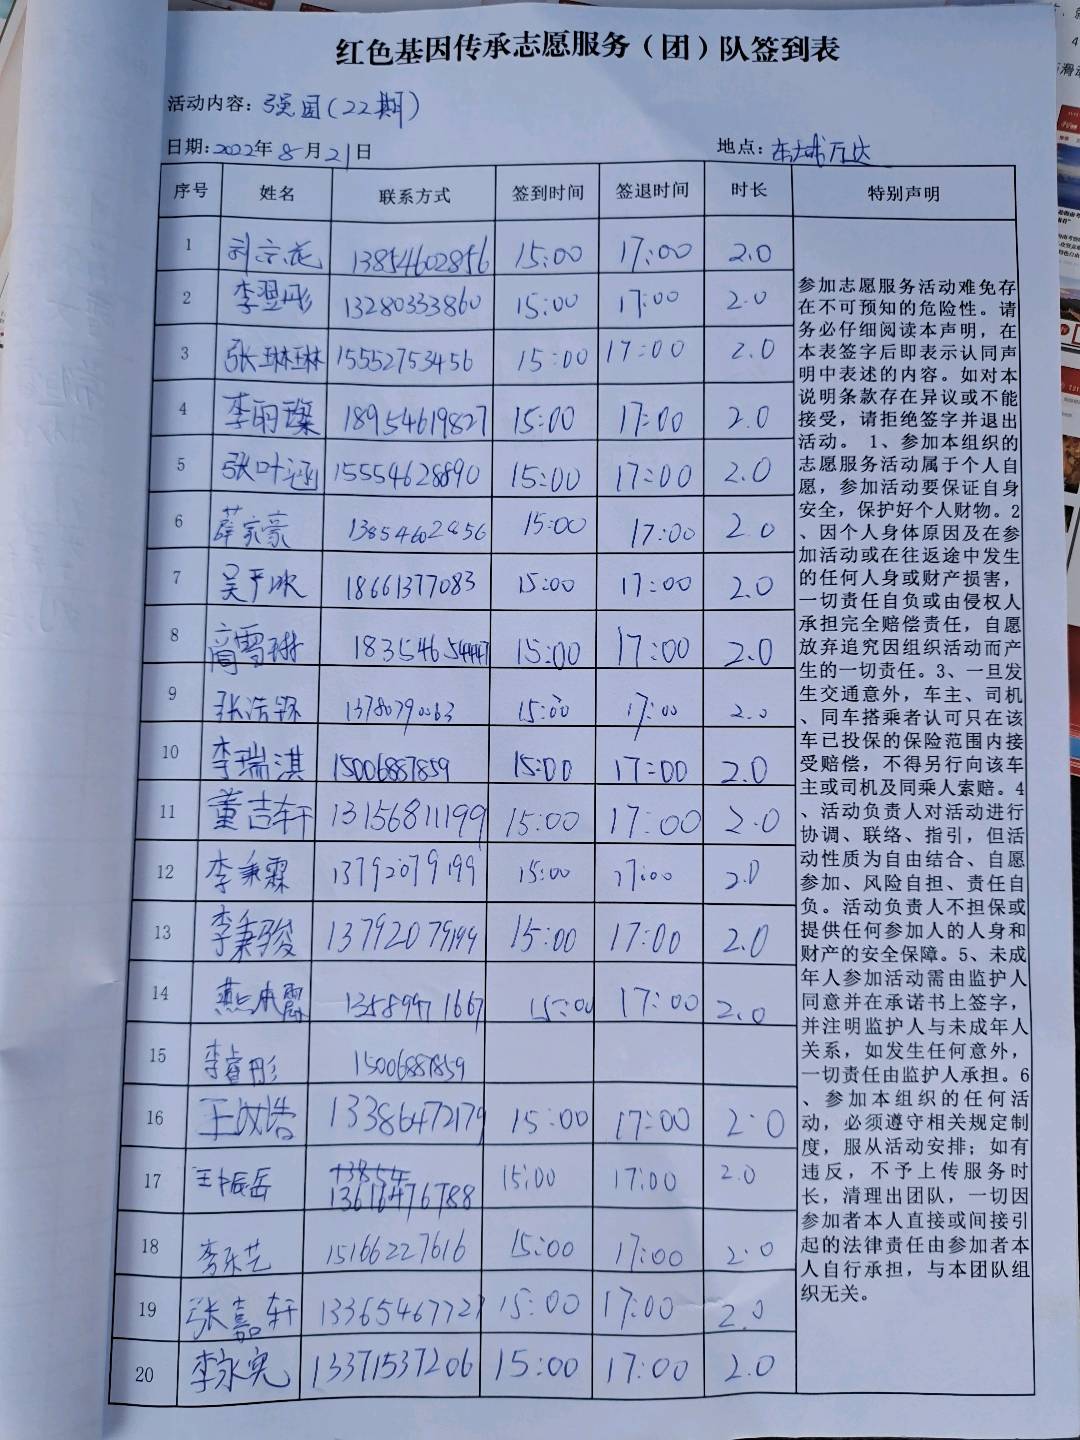 红色基因传承志愿服务（团）队签到表
活动内容：强国(22期)
日期:2022年8月21日 地点：东城万达
序号 姓名 联系方式 签到时间 签退时间 时长 特别声明
1 刘京花 13854602856 15:00 17:00 2.0
2 李翌彤 13280333860 15:00 17:00 2.0
3 张琳琳 15552753456 15:00 17:00 2.0
4 李雨璨 18954619827 15:00 17:00 2.0
5 张叶涵 15554628890 15:00 17:00 2.0
6 薛家豪 13854602856 15:00 17:00 2.0
7 吴严冰 18661377083 15:00 17:00 2.0
8 商雪琳 15:00 17:00 2.0
9 张浩 15:00 17:00 2.0
10 李瑞淇 15006887859 15:00 17:00 2.0
11 董吉轩 13156811199 15:00 17:00 2.0
12 李秉霖 13792079199 15:00 17:00 2.0
13 李秉骏 13792079199 15:00 17:00 2.0
14 燕 15:00 17:00 2.0
15 李睿彤 15006887859
16 王 13386472179 15:00 17:00 2.0
17 王振岳 13616476788 15:00 17:00 2.0
18 李乐艺 15166227616 15:00 17:00 2.0
19 张嘉轩 13365467727 15:00 17:00 2.0
20 李永宪 13371537206 15:00 17:00 2.0
参加志愿服务活动难免存
在不可预知的危险性。请
务必仔细阅读本声明，在
本表签字后即表示认同声
明中表述的内容。如对本
说明条款存在异议或不能
接受，请拒绝签字并退出
活动。 1、参加本组织的
志愿服务活动属于个人自
愿，参加活动要保证自身
安全，保护好个人财物。2
、因个人身体原因及在参
加活动或在往返途中发生
的任何人身或财产损害，
一切责任自负或由侵权人
承担完全赔偿责任，自愿
放弃追究因组织活动而产
生的一切责任。3、一旦发
生交通意外，车主、司机
、同车搭乘者认可只在该
车已投保的保险范围内接
受赔偿，不得另行向该车
主或司机及同乘人索赔。4
、活动负责人对活动进行
协调、联络、指引，但活
动性质为自由结合、自愿
参加、风险自担、责任自
负。活动负责人不担保或
提供任何参加人的人身和
财产的安全保障。5、未成
年人参加活动需由监护人
同意并在承诺书上签字，
并注明监护人与未成年人
关系，如发生任何意外，
一切责任由监护人承担。6
、参加本组织的任何活
动，必须遵守相关规定制
度，服从活动安排；如有
违反，不予上传服务时
长，清理出团队，一切因
参加者本人直接或间接引
起的法律责任由参加者本
人自行承担，与本团队组
织无关。